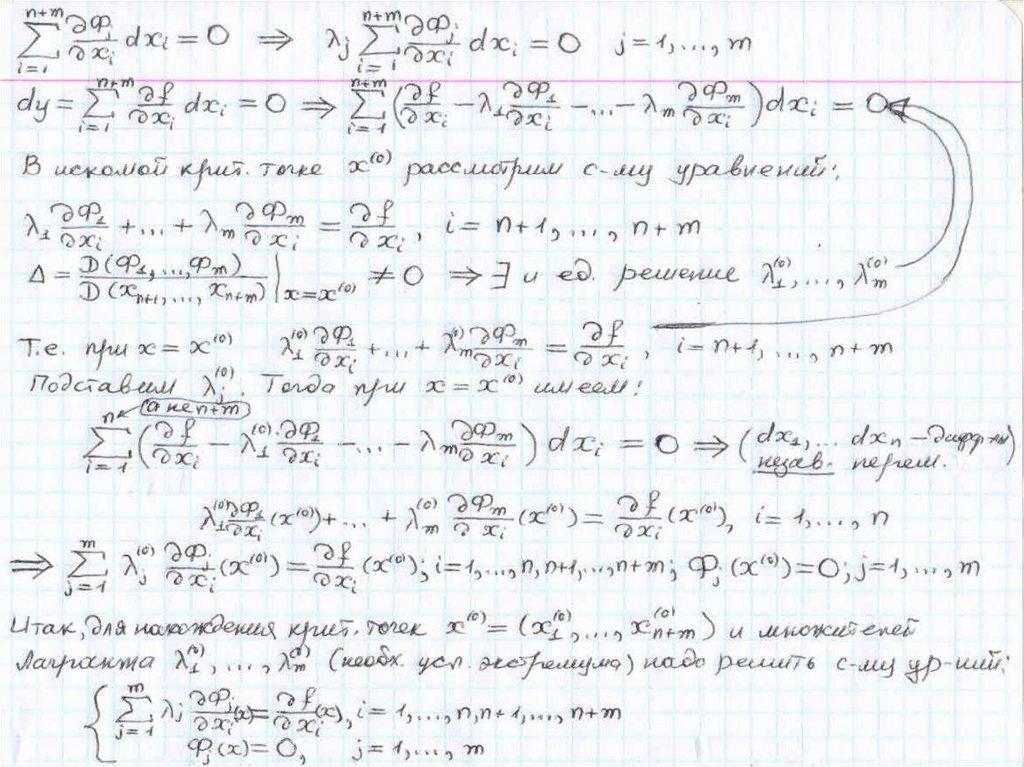 ∑_{i=1}^{n+m} ∂Φ_j/∂x_i dx_i = 0 ⇒ λ_j ∑_{i=1}^{n+m} ∂Φ_j/∂x_i dx_i = 0 j=1,...,m
dy = ∑_{i=1}^{n+m} ∂f/∂x_i dx_i = 0 ⇒ ∑_{i=1}^{n+m} (∂f/∂x_i − λ_1 ∂Φ_1/∂x_i − ... − λ_m ∂Φ_m/∂x_i) dx_i = 0
В искомой крит. точке x^{(0)} рассмотрим с-му уравнений:
λ_1 ∂Φ_1/∂x_i + ... + λ_m ∂Φ_m/∂x_i = ∂f/∂x_i, i = n+1,..., n+m
Δ = D(Φ_1,...,Φ_m)/D(x_{n+1},..., x_{n+m}) |_{x=x^{(0)}} ≠ 0 ⇒ ∃ и ед. решение λ_1^{(0)},..., λ_m^{(0)}
Т.е. при x = x^{(0)} λ_1^{(0)} ∂Φ_1/∂x_i + ... + λ_m^{(0)} ∂Φ_m/∂x_i = ∂f/∂x_i, i = n+1,..., n+m
Подставим λ_j^{(0)}. Тогда при x = x^{(0)} имеем:
а не n+m
∑_{i=1}^{n} (∂f/∂x_i − λ_1^{(0)} ∂Φ_1/∂x_i − ... − λ_m ∂Φ_m/∂x_i) dx_i = 0 ⇒ (dx_1,... dx_n − дифф-лы
незав. перем.)
λ_1^{(0)} ∂Φ_1/∂x_i (x^{(0)}) + ... + λ_m^{(0)} ∂Φ_m/∂x_i (x^{(0)}) = ∂f/∂x_i (x^{(0)}), i = 1,..., n
⇒ ∑_{j=1}^{m} λ_j^{(0)} ∂Φ_j/∂x_i (x^{(0)}) = ∂f/∂x_i (x^{(0)}); i=1,...,n,n+1,...,n+m; Φ_j (x^{(0)}) = 0; j=1,..., m
Итак, для нахождения крит. точек x^{(0)} = (x_1^{(0)},..., x_{n+m}^{(0)}) и множителей
Лагранжа λ_1^{(0)},..., λ_m^{(0)} (необх. усл. экстремума) надо решить с-му ур-ний:
{ ∑_{j=1}^{m} λ_j ∂Φ_j/∂x_i (x) = ∂f/∂x_i (x), i = 1,..., n, n+1,..., n+m
Φ_j (x) = 0, j = 1,..., m